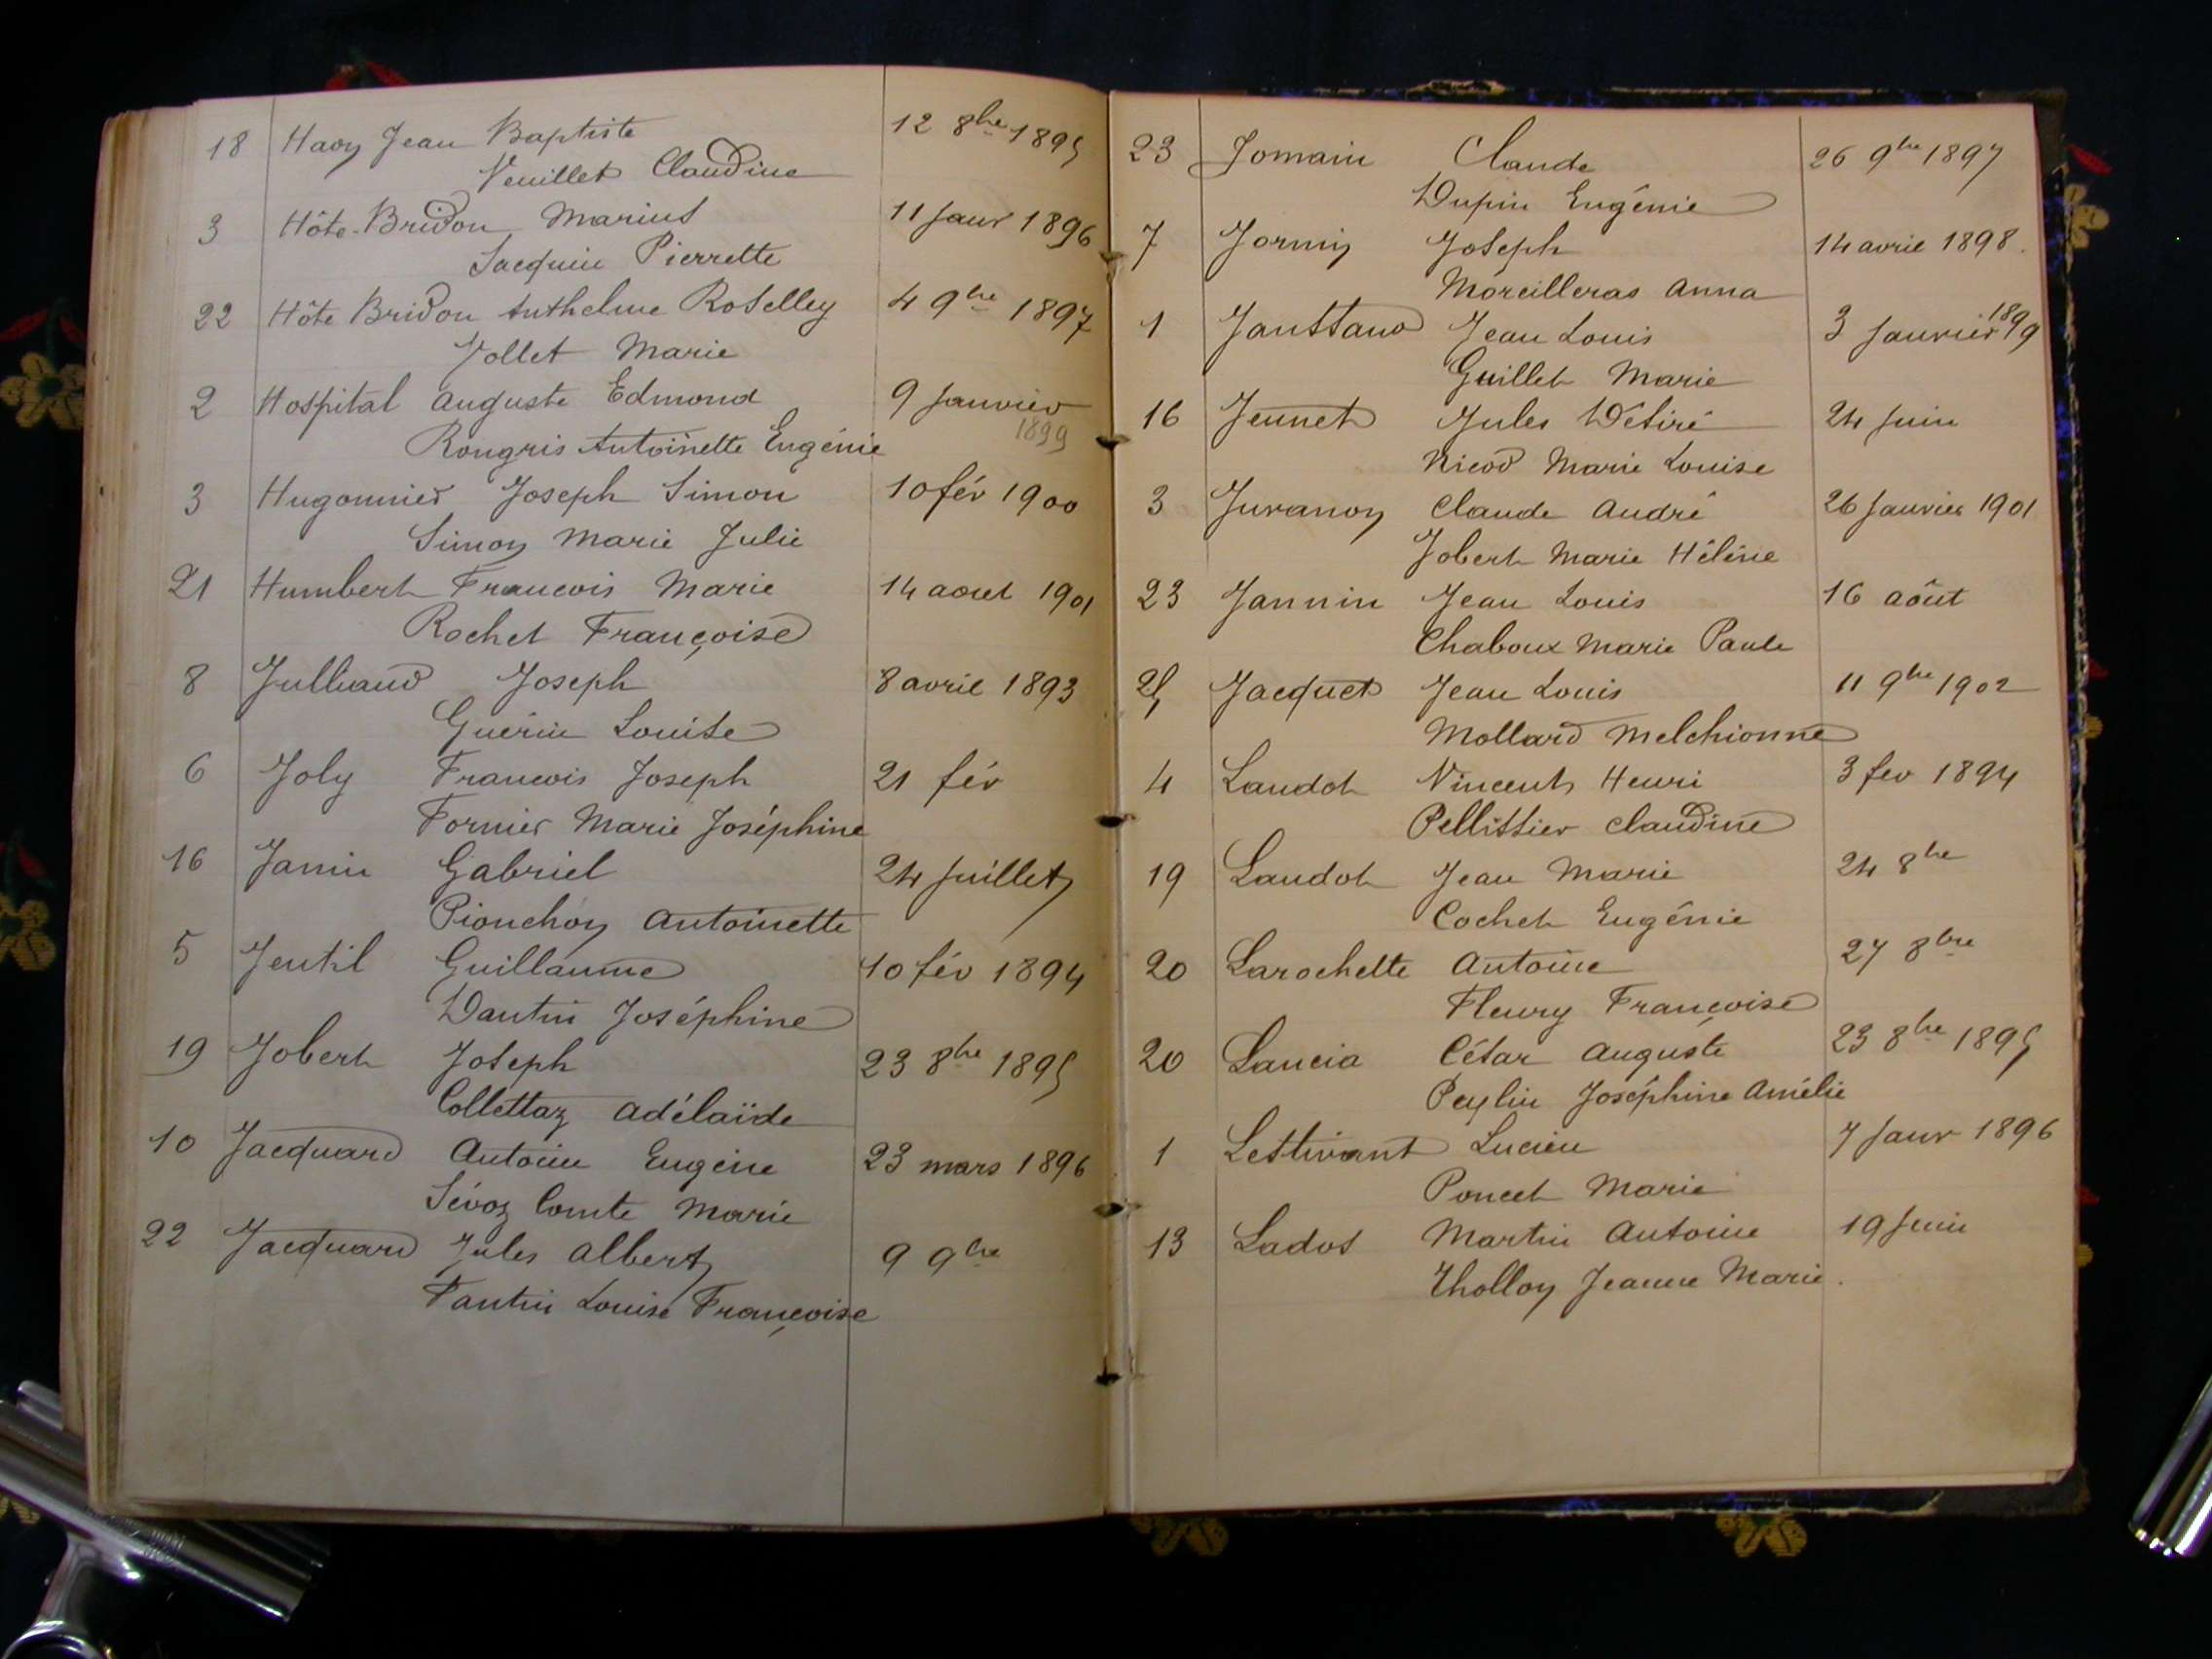 18 Havy Jean Baptiste 12 8bre 1895
Veuillet Claudine
3 Hôte-Bridon Marius 11 Janr 1896
Jacquin Pierrette
22 Hôte Bridon Anthelme Roselley 4 9bre 1897
Jollet Marie
2 Hospital Auguste Edmond 9 Janvier
1899
Rongris Antoinette Eugénie
3 Hugonnier Joseph Simon 10 fév 1900
Simon Marie Julie
21 Humbert Francois Marie 14 aout 1901
Rochet Françoise
8 Julliand Joseph 8 avril 1893
Guérin Louise
6 Joly Francois Joseph 21 fév
Fornier Marie Joséphine
16 Janin Gabriel 24 Juillet
Pionchon Antoinette
5 Jentil Guillaume 10 fév 1894
Dantin Joséphine
19 Jobert Joseph 23 8bre 1895
Collettaz Adélaïde
10 Jacquard Antoine Eugène 23 mars 1896
Sévoz Comte Marie
22 Jacquard Jules Albert 9 9bre
Fantin Louise Françoise
23 Jomain Claude 26 9bre 1897
Dupin Eugénie
7 Jornin Joseph 14 avril 1898.
Moreilleras Anna
1 Janssaud Jean Louis 3 Janvier 1899
Guillet Marie
16 Jeunet Jules Désiré 24 Juin
Nicod Marie Louise
3 Juranon Claude André 26 Janvier 1901
Jobert Marie Hélène
23 Jannin Jean Louis 16 aôut
Chaboux Marie Paule
25 Jacquet Jean Louis 11 9bre 1902
Mollard Melchionne
4 Landot Vincent Henri 3 fev 1894
Pellissier Claudine
19 Landot Jean Marie 24 8bre
Cochet Eugénie
20 Larochette Antoine 27 8bre
Fleury Françoise
20 Lancia César Auguste 23 8bre 1895
Peylin Joséphine Amélie
1 Lestivant Lucien 7 Janr 1896
Poncet Marie
13 Lados Martin Antoine 19 Juin
Tholloy Jeanne Marie.